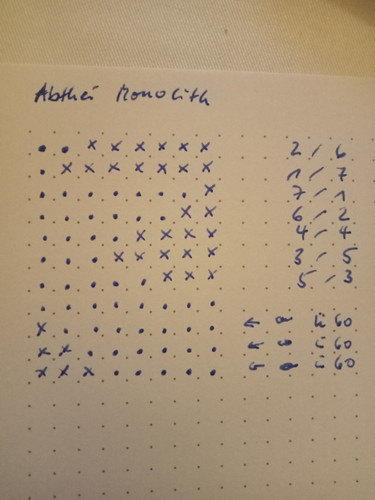 Abthei Monolith
• • x x x x x x 2 / 6
• x x x x x x x 1 / 7
• • • • • • • x 7 / 1
• • • • • • x x 6 / 2
• • • • x x x x 4 / 4
• • • x x x x x 3 / 5
• • • • • x x x 5 / 3
• • • • • • • •
x • • • • • • • ← • 60
x x • • • • • • ← • 60
x x x • • • • • ← • 60